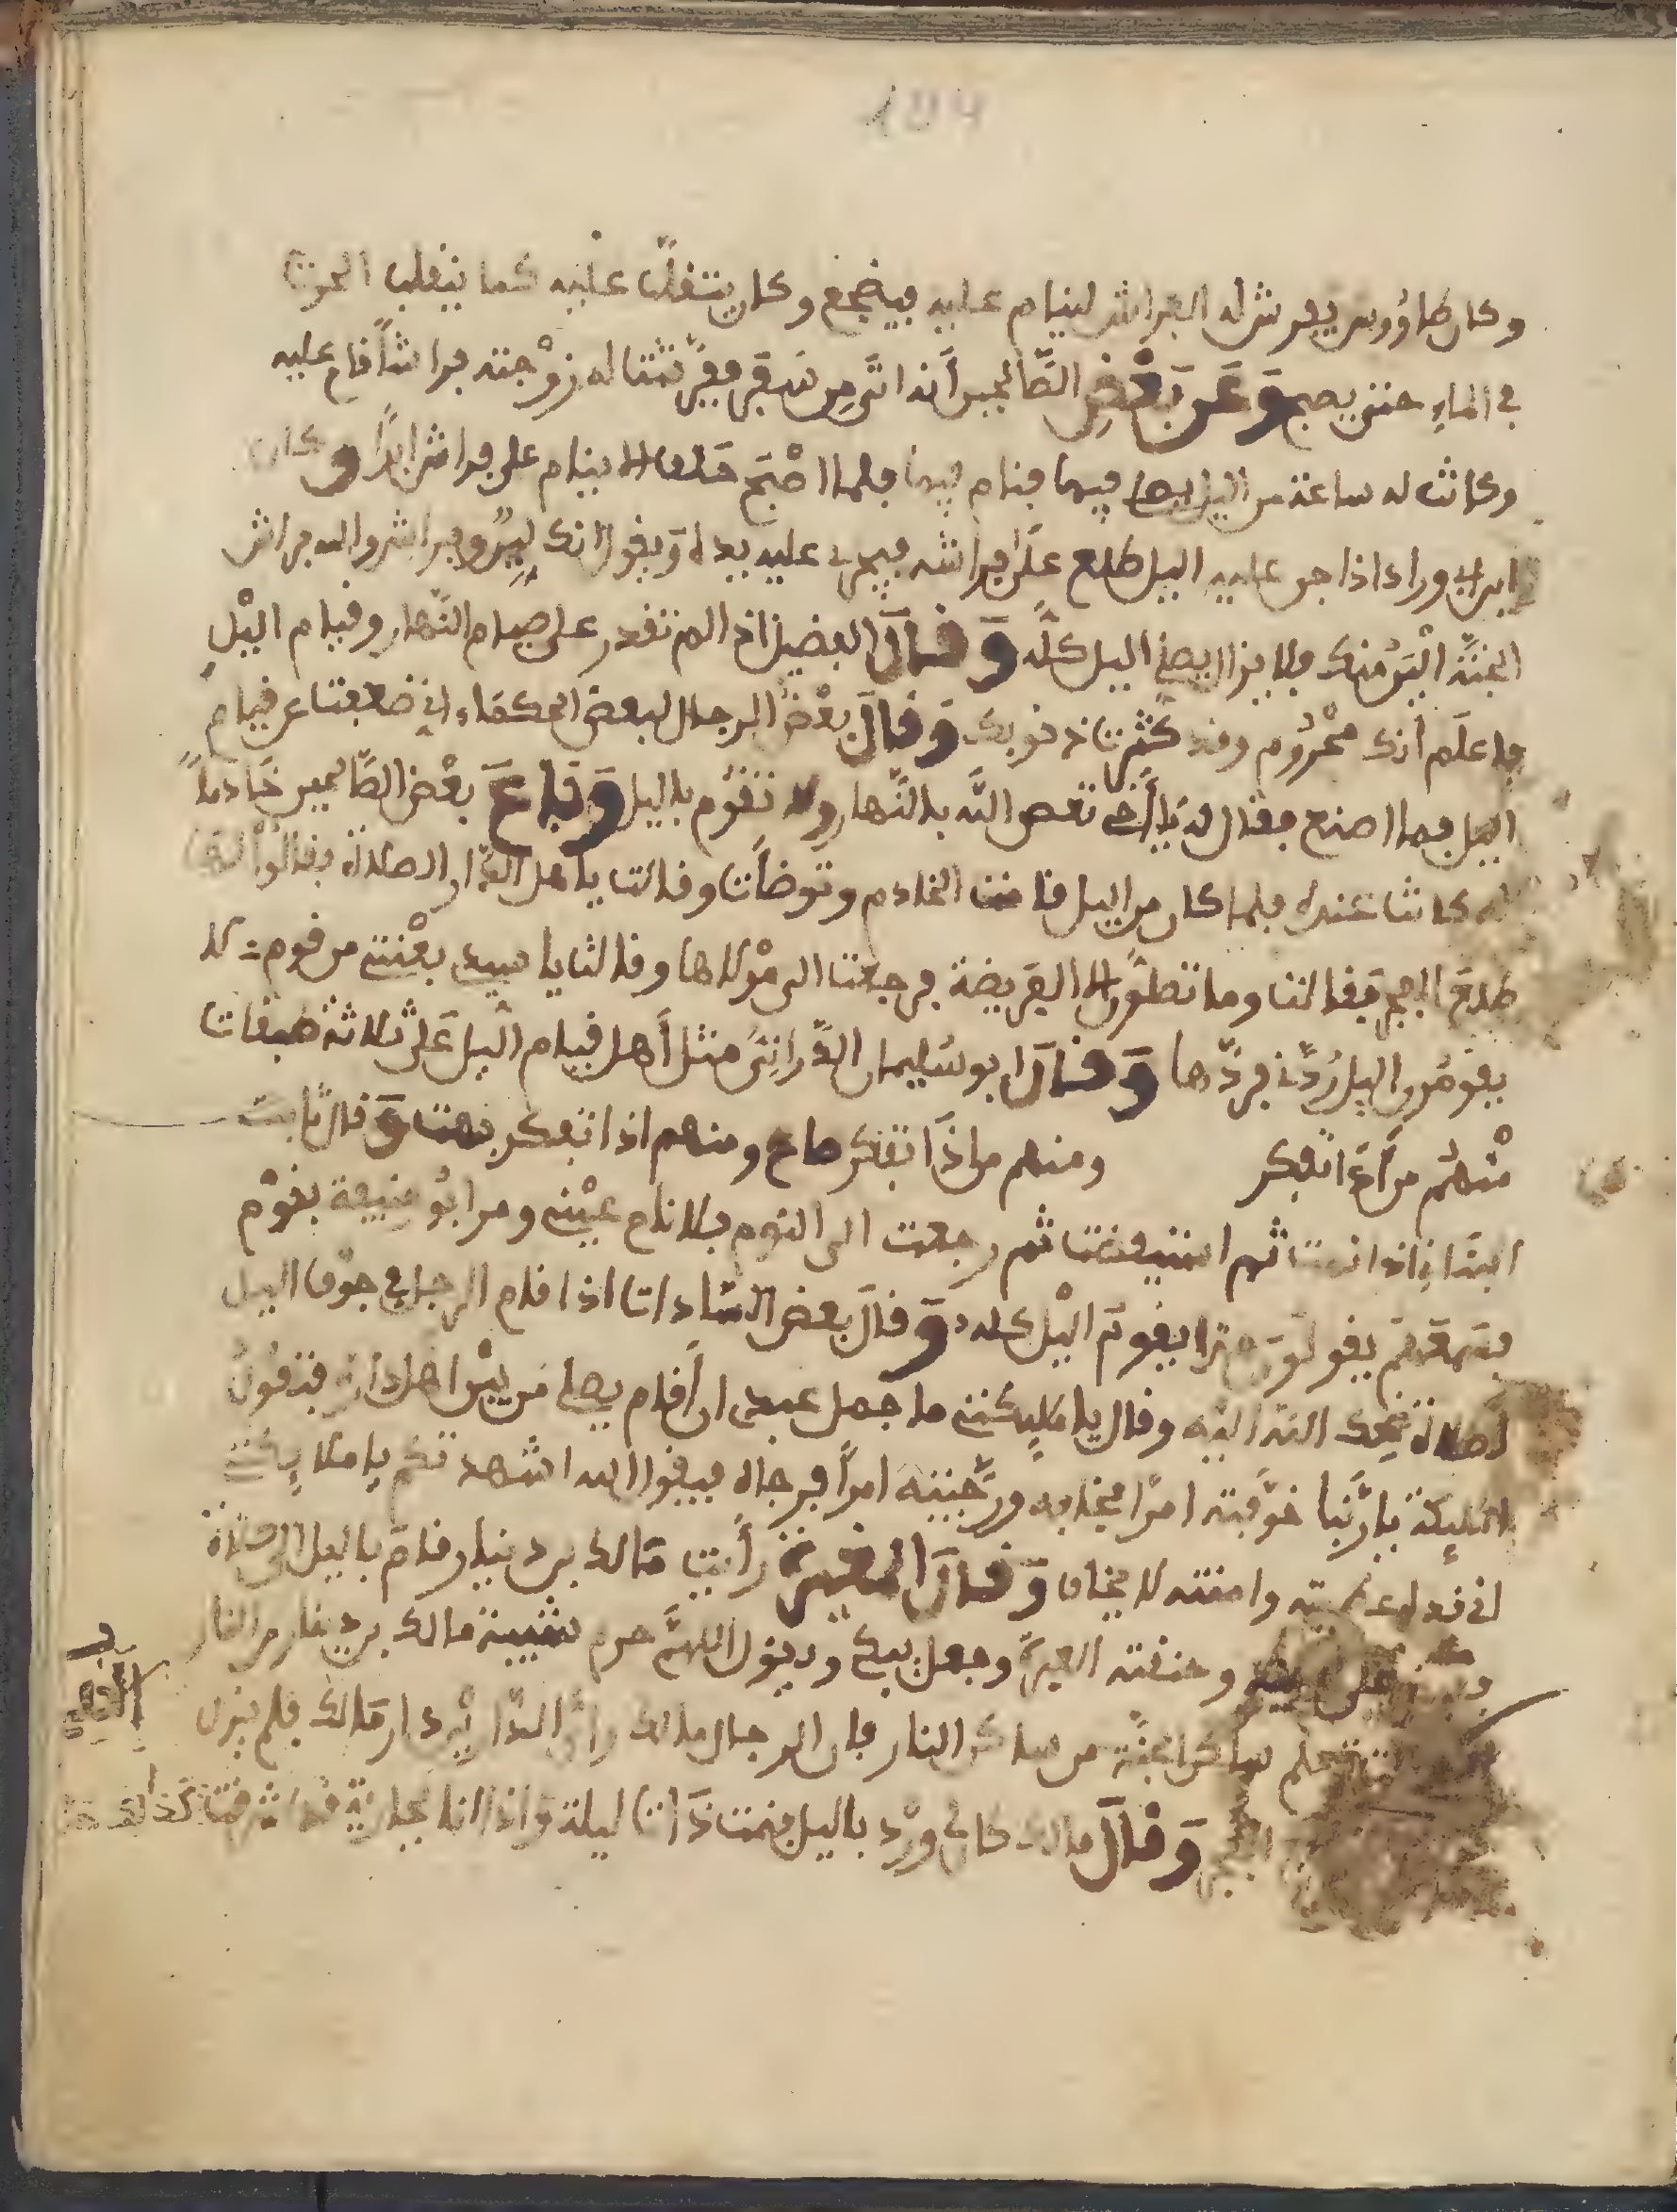 194
وكان طاووس يفرش له الفراش لينام عليه فيضجع وكان يتقلّب عليه كما يتقلب الحوت
في الماءِ حتى يصبح وَعَن بَعْضِ الصَّالحين أنه اتى مِن سَفَرٍ فَفَرَشت له زوْجته فراشاً فنام عليه
وكانت له ساعة من اليل يصلي فيها فنام فيها فلما اصْبَح حَلف الا ينام على فراش ابداً وكان
ابن ابي وراد اذا جن عليه اليل طلع علَى فراشه فيمر عليه يده وَيقول انك ليّن وفراش والله فراش
الجنَّة اليَن منك ولا يزال يصلي اليل كلَّه وَقَالَ الفضيل اذا لم تقدر على صيام النَّهار وقيام اليْل
فاعلَم أنك محْرُوم وقد كَثُرت ذنوبك وَقَالَ بعْضُ الرجال لبعض الحكمَاء اني ضعفت عن قيام
اليل فما اصنع فقال له يَا أَخي تعص اللّه بالنَّهار ولا تقوُم باليل وَبَاعَ بعْض الصَّالحين خَادماً
له كانت عنده فلما كان من اليل قامت الخادم وتوضأت وقالت يا هل الدّار الصلاة فقالُوا لها
طلعَ الفجر فقالت وما تصلون الا الفَريضة فرجعت الى موْلاها وقالت يا سيدي بعْتني من قوم لا
يقومُون اليل رُدَّني فردّها وَقَالَ ابو سُليمان الدَّرانِيُّ مثل أهل قيام الّيل عَلى ثلاثة طبقات
مْنهُم من اذَا تفكر ومنهم من اذَا تفكر صاح ومنهم اذا تفكر بهت وَقال ثابت
البنَاني اذا نمت ثم استيقظت ثم رجعت الى النوم فلا نام عيْني ومر ابُو حنيفة بقوْم
فسَمعَهُم يقولُون هذا يقوم اليْل كله وَقَالَ بعض السَّادات اذا قام الرجل في جوْف اليل
لصلاة ضَحِك اللّه اليْه وقال يا ملايكتي ما حمل عبدي ان أَقام يصلي من بيْن اهل داره فتقولُ
الملايكة يا رَبَّنا خوَّفته امرًا فخافه ورَجَّيته امراً فرجاه فيقول الله اشهدتكم يا ملايكتي
اني قد له وامنته لا يخاف وَقَالَ المغيرة رأيت مَالك بن دينار قام باليل الى صلاة
على وخنقته العبرة وجعل يبكي ويقول اللهُمَّ حرم شيبة مالك بن دينار من النار
تعلم ساكن الجنَّة من ساكن النار فان الرجال مالك واَيّ الدَّارين دار مَالك فلم يزل
الفجر وَقَالَ مالك كان لي ورْد باليل فنمت ذَات ليلة وَاذا انا بجارية